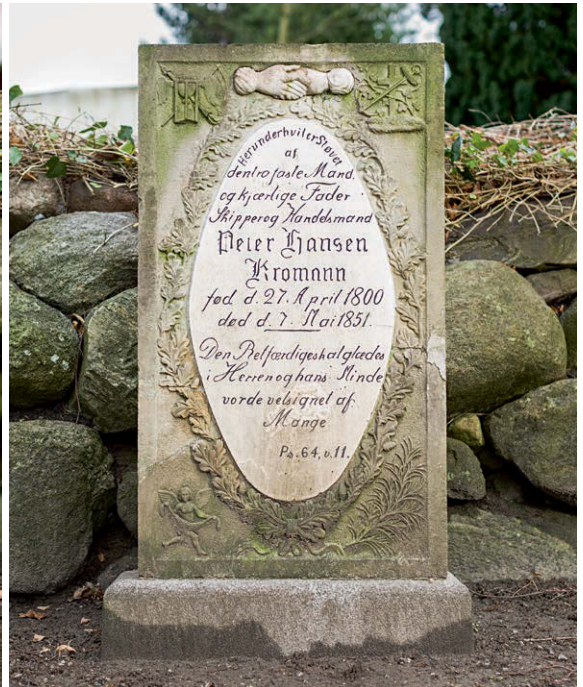 Herunder hviler Støvet
af
den trofaste Mand
og kjærlige Fader
Skipper og Handelsmand
Peter Hansen
Kromann
fød d. 27. April 1800
død d. 7. Mai 1851.
Den Retfærdige skal glædes
i Herren og hans Minde
vorde velsignet af
Mange
Ps. 64, v. 11.